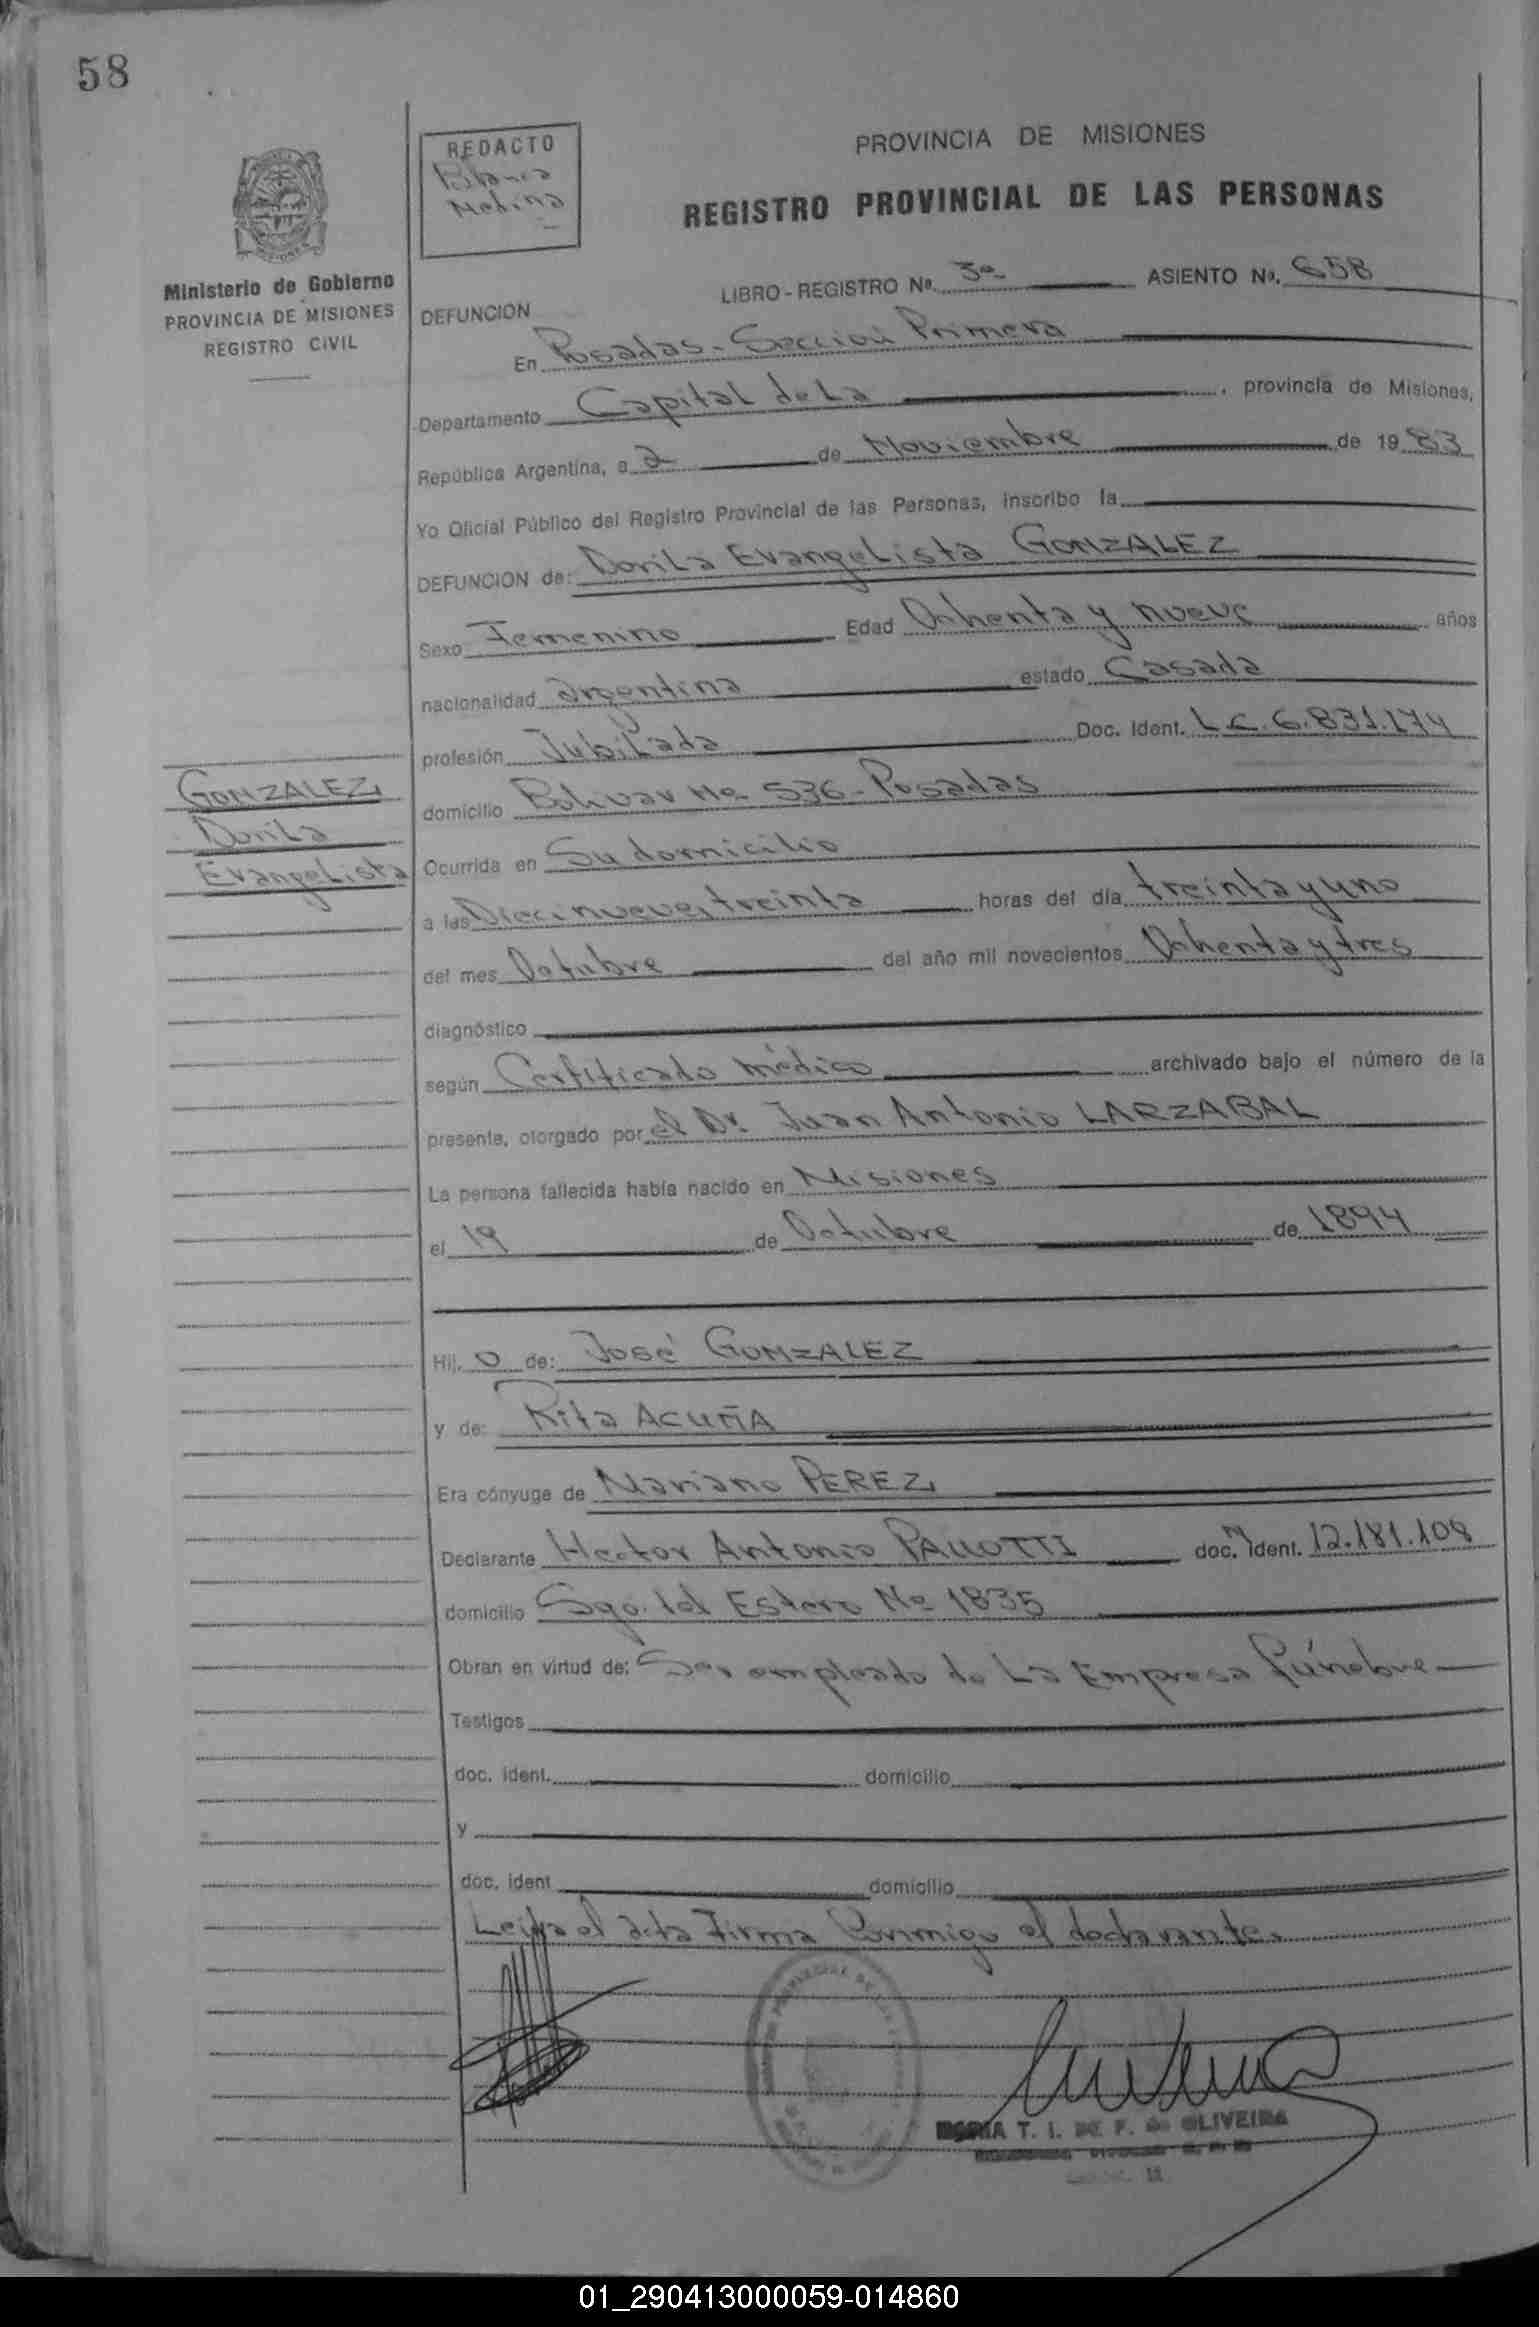 58
REDACTO
Blanca
Medina
PROVINCIA DE MISIONES
REGISTRO PROVINCIAL DE LAS PERSONAS
Ministerio de Gobierno
PROVINCIA DE MISIONES
REGISTRO CIVIL
LIBRO-REGISTRO Nº. 3º ASIENTO Nº. 658
DEFUNCION
En Posadas - Sección Primera
Departamento Capital de La , provincia de Misiones,
República Argentina, a 2 de Noviembre de 1983
Yo Oficial Público del Registro Provincial de las Personas, inscribo la
DEFUNCION de: Dorila Evangelista GONZALEZ
Sexo Femenino Edad Ochenta y nueve años
nacionalidad argentina estado Casada
profesión Jubilada Doc. Ident. L.C. 6.831.174
GONZALEZ,
Dorila
Evangelista
domicilio Bolivar Nº 536 - Posadas
Ocurrida en Su domicilio
a las Diecinueve, treinta horas del día treinta y uno
del mes Octubre del año mil novecientos Ochenta y tres
diagnóstico
según Certificado médico archivado bajo el número de la
presente, otorgado por el Dr. Juan Antonio LARZABAL
La persona fallecida había nacido en Misiones
el 19 de Octubre de 1894
Hij. o de: José GONZALEZ
y de: Rita ACUÑA
Era cónyuge de Mariano PEREZ,
Declarante Hector Antonio PALLOTTI doc. ident. 12.181.108
domicilio Sgo. del Estero Nº 1835
Obran en virtud de: Ser empleado de La Empresa fúnebre
Testigos
doc. ident. domicilio
y
doc. ident domicilio
Leida el acta Firma Conmigo el declarante.
MARIA T. I. DE F. de OLIVEIRA
01_290413000059-014860